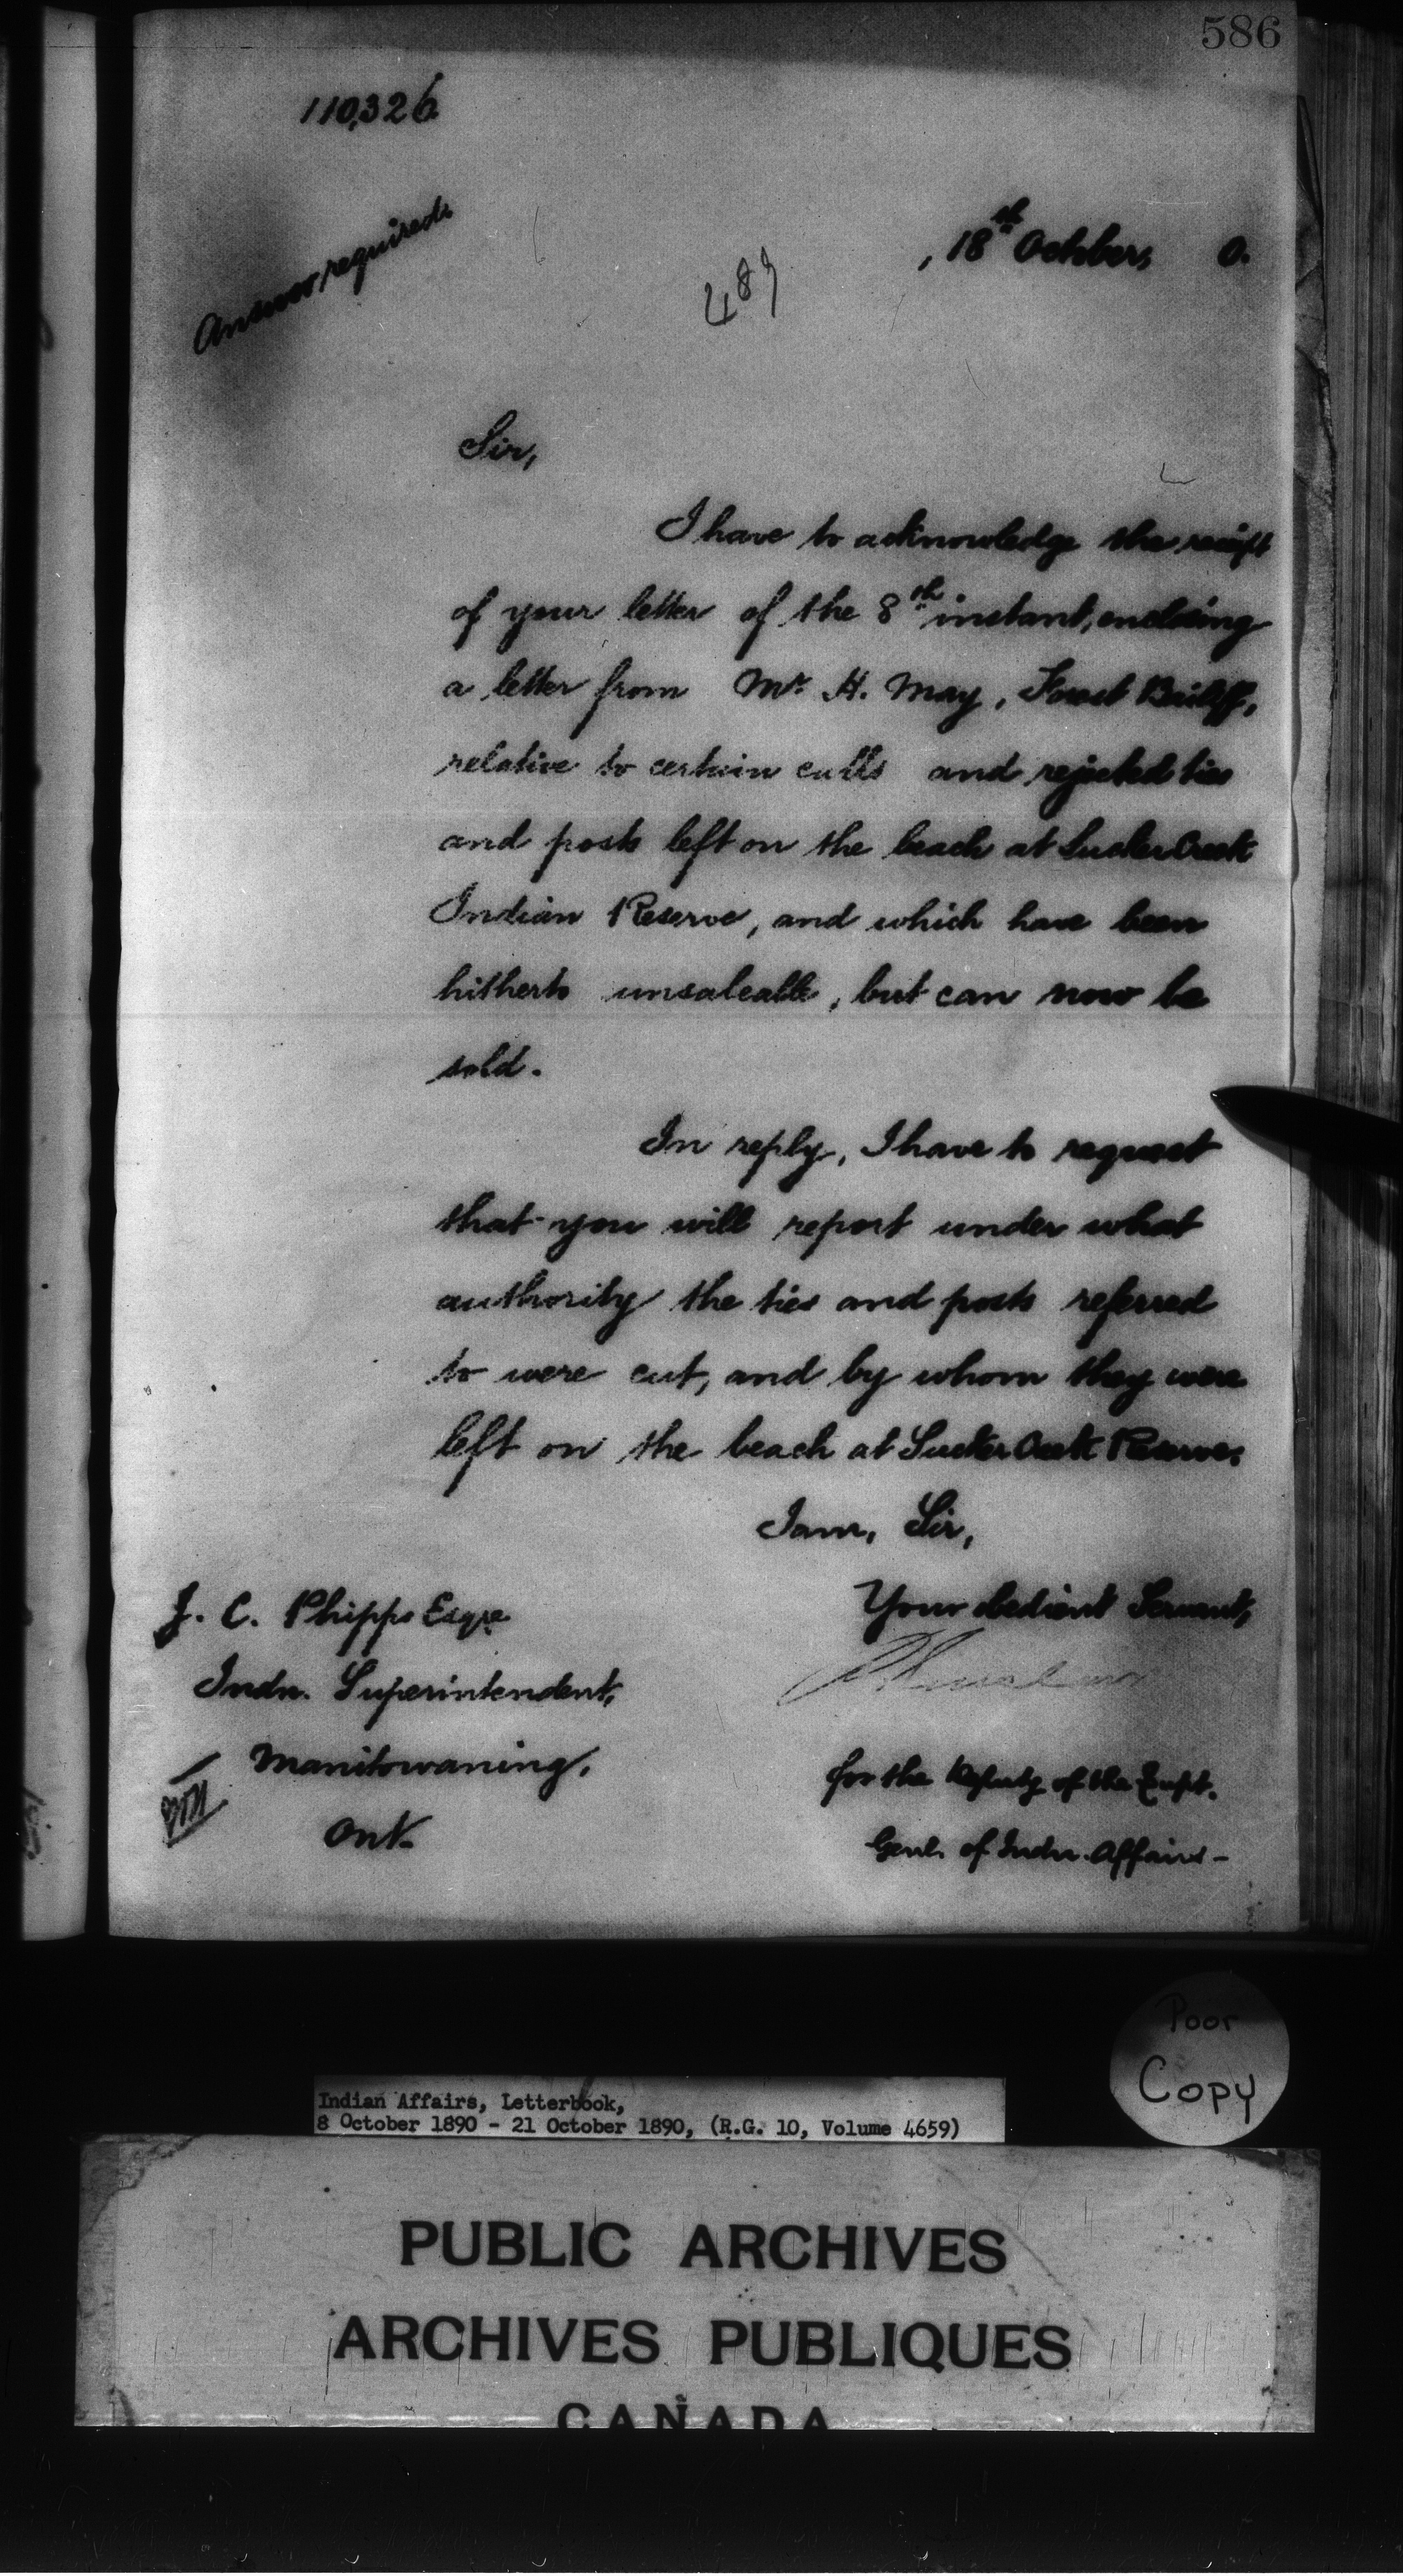 586
110,326
Answer required.
, 18th October, 0.
489
Sir,
I have to acknowledge the receipt
of your letter of the 8th instant, enclosing
a letter from Mr. H. May, Forest Bailiff,
relative to certain culls and rejected ties
and posts left on the beach at Sucker Creek
Indian Reserve, and which have been
hitherto unsaleable, but can now be
sold.
In reply, I have to request
that you will report under what
authority the ties and posts referred
to were cut, and by whom they were
left on the beach at Sucker Creek Reserve.
I am, Sir,
Your obedient Servant,
J. C. Phipps Esqre
Indn. Superintendent,
Manitowaning,
Ont.
for the Deputy of the Supt.
Genl. of Indn. Affairs-
Poor
Copy
Indian Affairs, Letterbook,
8 October 1890 - 21 October 1890, (R.G. 10, Volume 4659)
PUBLIC ARCHIVES
ARCHIVES PUBLIQUES
CANADA